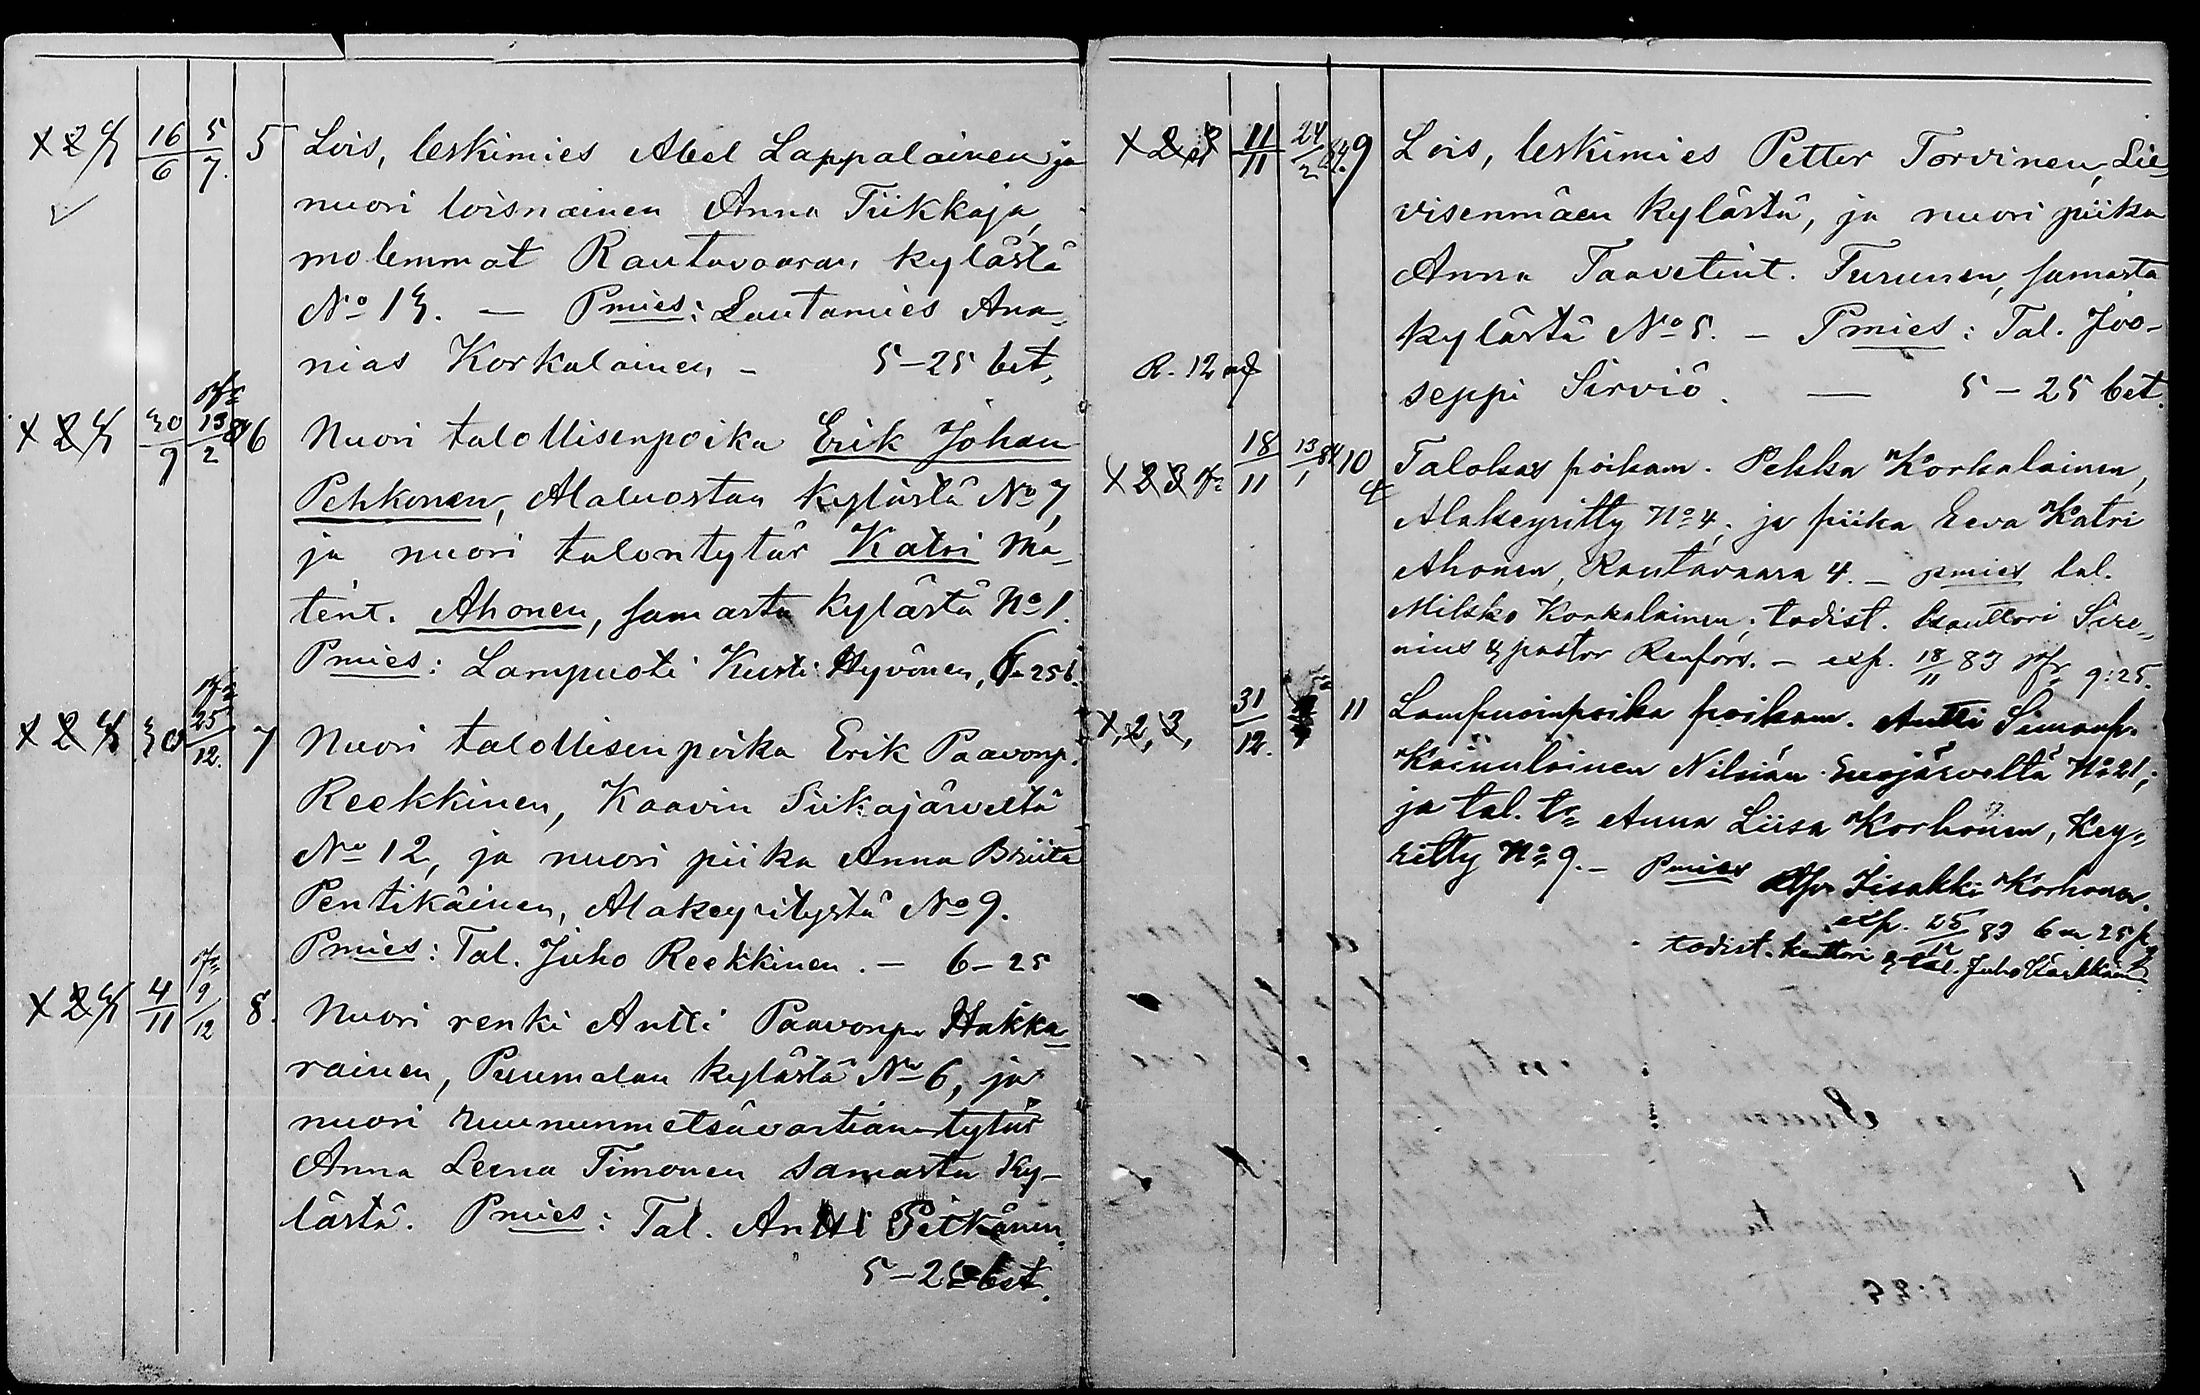 X 2 3 16/6 5/7. 5 Lois, leskimies Abel Lappalainen ja
nuori loisnainen Anna Tiikkaja,
molemmat Rautavaaran kylästä
No 13. — Pmies: Lautamies Ana-
nias Korkalainen - 5-25 bet.
X 2 3 30/9 13/2 84 6 Nuori talollisenpoika Erik Johan
Pehkonen, Alaluostan kylästä No 7,
ja nuori talontytär Katri Ma-
tint. Ahonen, samasta kylästä No 1.
Pmies: Lampuoti Kusti Hyvönen, 6-25 b.
X 2 3 30 25/12. 7 Nuori talollisenpoika Erik Paavonp.
Reekkinen, Kaavin Siikajärveltä
No 12, ja nuori piika Anna Briita
Pentikäinen, Alakeyritystä No 9.
Pmies: Tal. Juho Reekkinen. - 6-25
X 2 3 4/11 9/12 8. Nuori renki Antti Paavonp. Hakka-
rainen, Puumalan kylästä No 6, ja
nuori ruununmetsävartian tytär
Anna Leena Timonen samasta ky-
lästä. Pmies: Tal. Antti Pitkänen.
5-25 bet.
X 2 3 11/11 24/2 84. 9 Lois, leskimies Petter Torvinen, Lie-
visenmäen kylästä, ja nuori piika
Anna Taavetint. Turunen, samasta
kylästä No 5. - Pmies: Tal. Joo-
R. 12 mf
seppi Sirviö. — 5-25 bet.
X 2 3 18/11 13/1 84 10 Talokas poikam. Pekka Korkalainen,
Alakeyritty No 4; ja piika Eeva Katri
Ahonen, Rautavaara 4. - pmies tal.
Mikko Korkalainen; todist. kanttori Sire-
nius & pastor Renfors. - exp. 18/11 83 9:25.
X, 2, 3, 31/12. 11 Lampuoinpoika poikam. Antti Simonp.
Kainulainen Nilsiän Suojärveltä No 21;
ja tal. tr Anna Liisa Korhonen, Key-
ritty No 9. - Pmies Iisakki Korhonen.
exp. 25/12 83 6 m. 25 p.
todist. kanttori & tal. Juho Kärkkäinen.